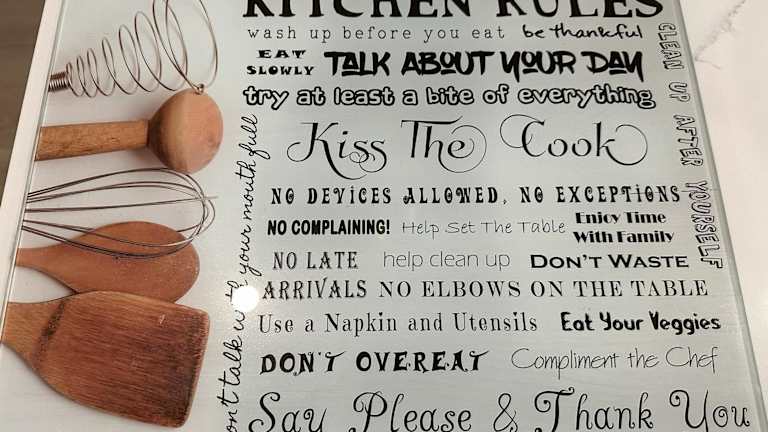 KITCHEN RULES
wash up before you eat be thankful
EAT SLOWLY TALK ABOUT YOUR DAY
try at least a bite of everything
Kiss The Cook
NO DEVICES ALLOWED, NO EXCEPTIONS
NO COMPLAINING! Help Set The Table Enjoy Time With Family
NO LATE ARRIVALS help clean up DON'T WASTE
NO ELBOWS ON THE TABLE
Use a Napkin and Utensils Eat Your Veggies
DON'T OVEREAT Compliment the Chef
Say Please & Thank You
on't talk with your mouth full
CLEAN UP AFTER YOURSELF